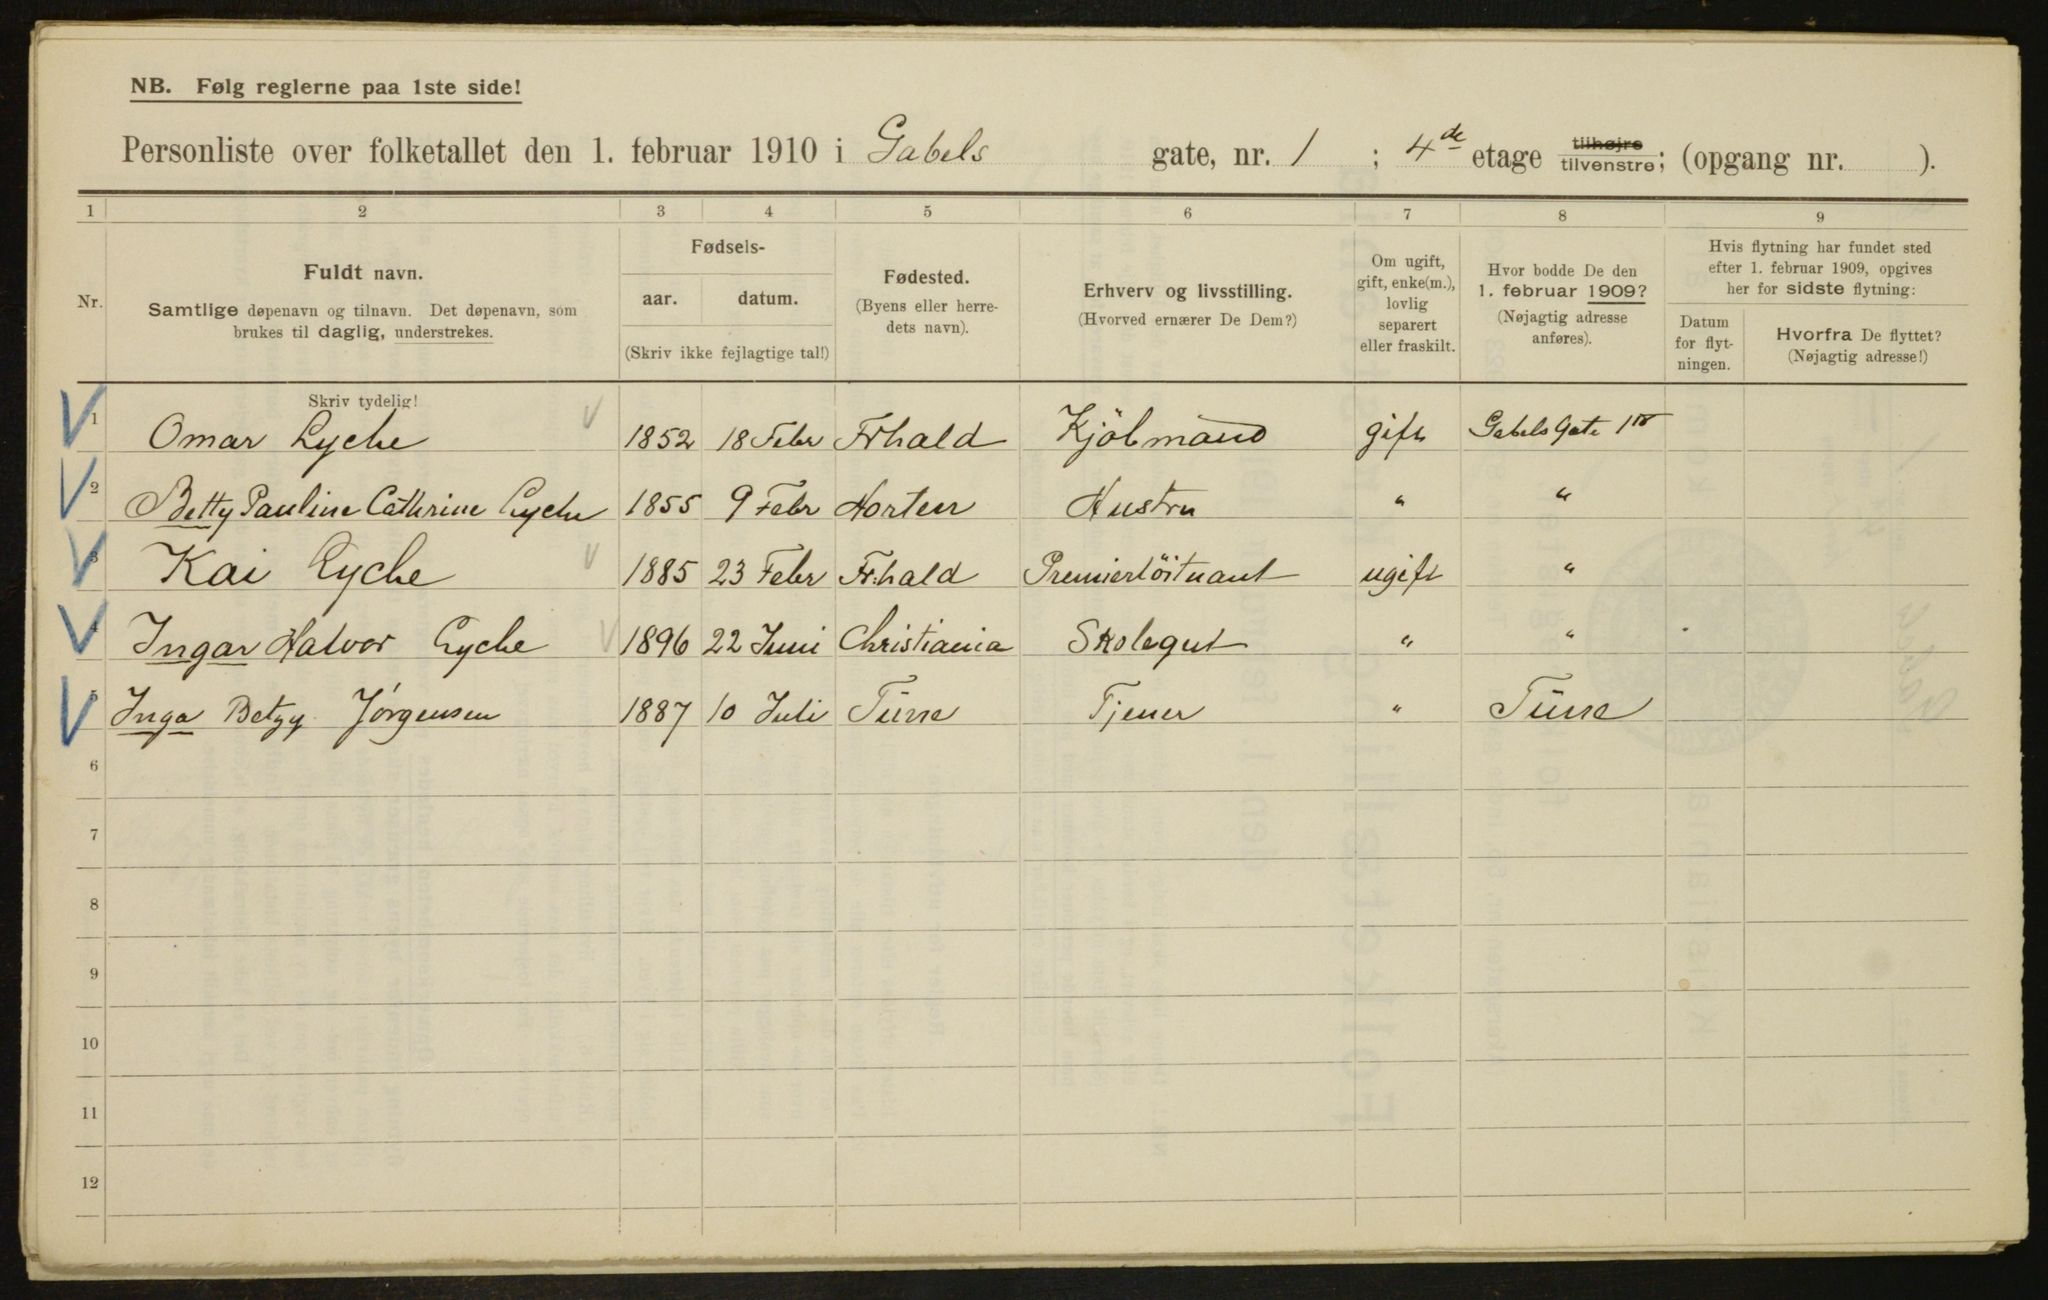 NB. Følg reglerne paa 1ste side!
Personliste over folketallet den 1. februar 1910 i Gabels gate, nr. 1 ; 4de etage tilhøjre tilvenstre; (opgang nr. ).
1 2 3 4 5 6 7 8 9
Nr.
Fuldt navn.
Samtlige døpenavn og tilnavn. Det døpenavn, som
brukes til daglig, understrekes.
Fødsels-
aar. datum.
(Skriv ikke fejlagtige tal!)
Fødested.
(Byens eller herre-
dets navn).
Erhverv og livsstilling.
(Hvorved ernærer De Dem?)
Om ugift,
gift, enke(m.),
lovlig
separert
eller fraskilt.
Hvor bodde De den
1. februar 1909?
(Nøjagtig adresse
anføres).
Hvis flytning har fundet sted
efter 1. februar 1909, opgives
her for sidste flytning:
Datum
for flyt-
ningen.
Hvorfra De flyttet?
(Nøjagtig adresse!)
Skriv tydelig!
1 Omar Lyche 1852 18 Febr Frhald Kjöbmand gift Gabels Gate 1
2 Betty Pauline Cathrine Lyche 1855 9 Febr Horten Hustru " "
3 Kai Lyche 1885 23 Febr Fr.hald Premierlöitnant ugift "
4 Ingar Halvor Lyche 1896 22 Juni Christiania Skolegut " "
5 Inga Betzy Jörgensen 1887 10 Juli Tjener "
6
7
8
9
10
11
12